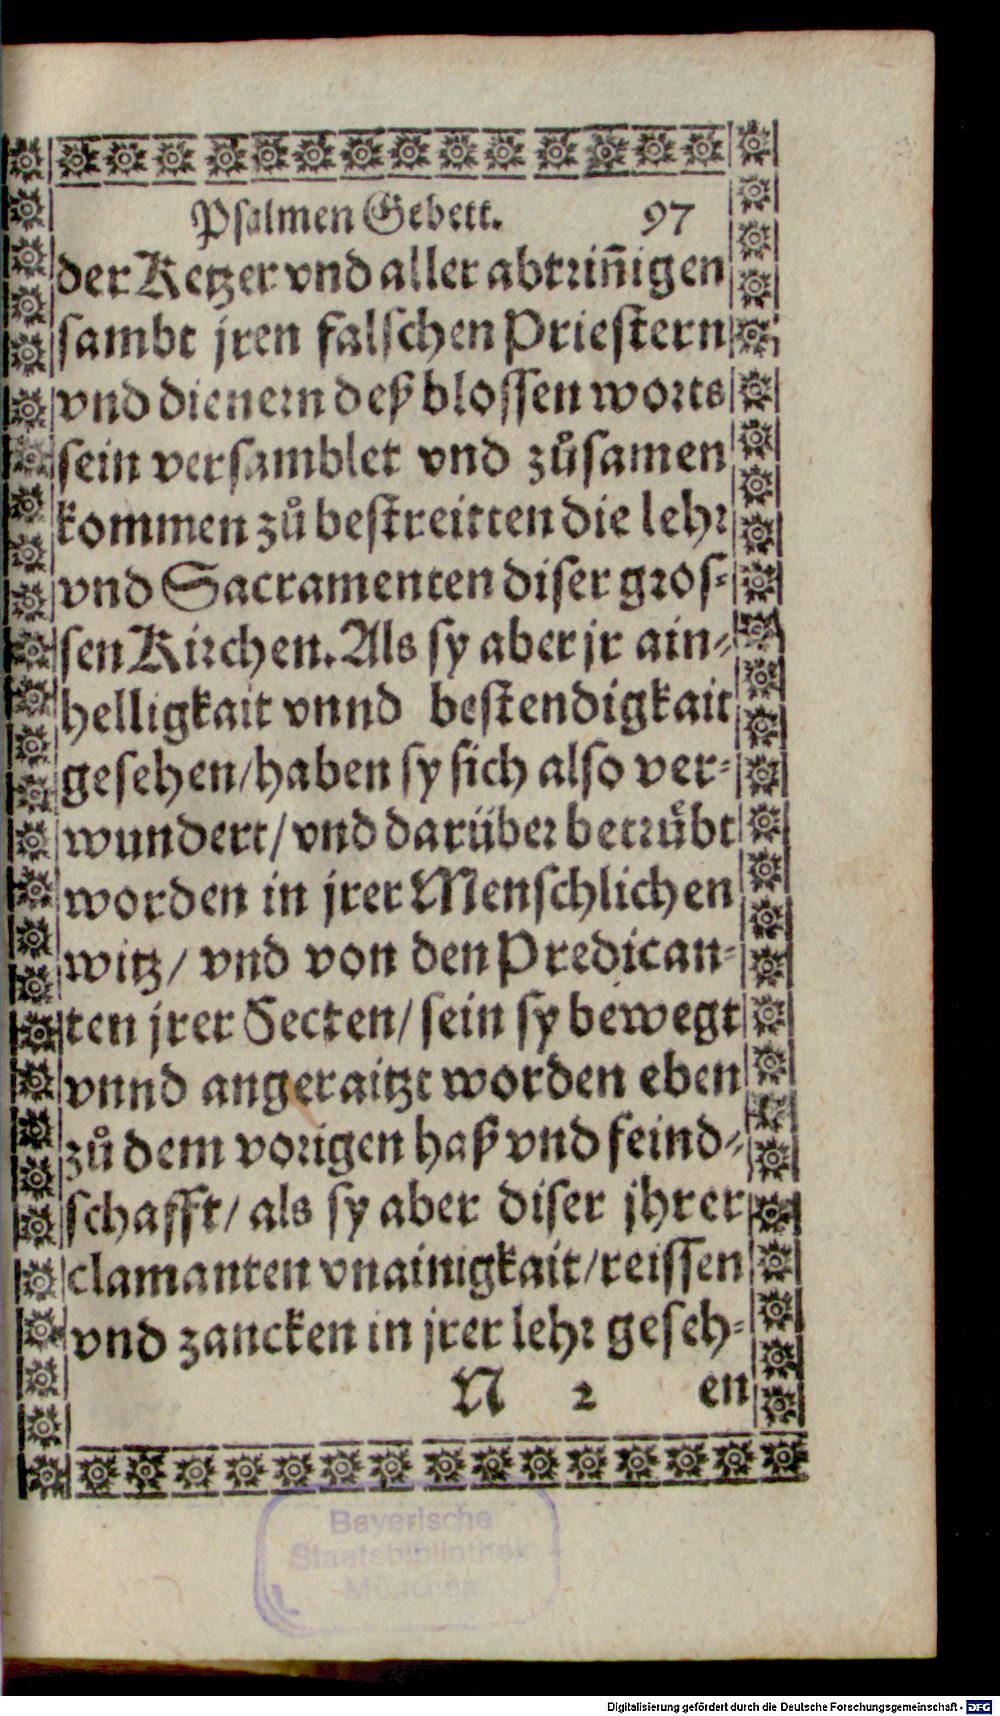 Psalmen Gebett. 97
der Ketzer vnd aller abtriñigen
sambt jren falschen Priestern
vnd dienern deß blossen worts
sein versamblet vnd zůsamen
kommen zů bestreitten die lehr
vnd Sacramenten diser gros-
sen Kirchen. Als sy aber jr ain-
helligkait vnnd bestendigkait
gesehen/haben sy sich also ver-
wundert/vnd darüber betrübt
worden in jrer Menschlichen
witz/ vnd von den Predican-
ten jrer Secten/ sein sy bewegt
vnnd angeraitzt worden eben
zů dem vorigen haß vnd feind-
schafft/ als sy aber diser jhrer
clamanten vnainigkait/reissen
vnd zancken in jrer lehr geseh-
N 2 en
Bayerische
Staatsbibliothek
München
Digitalisierung gefördert durch die Deutsche Forschungsgemeinschaft - DFG